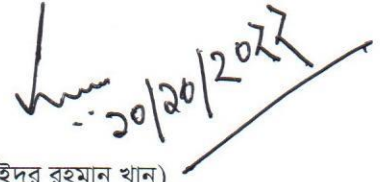 ১০/১০/২০২২
ইদুর রহমান খান)